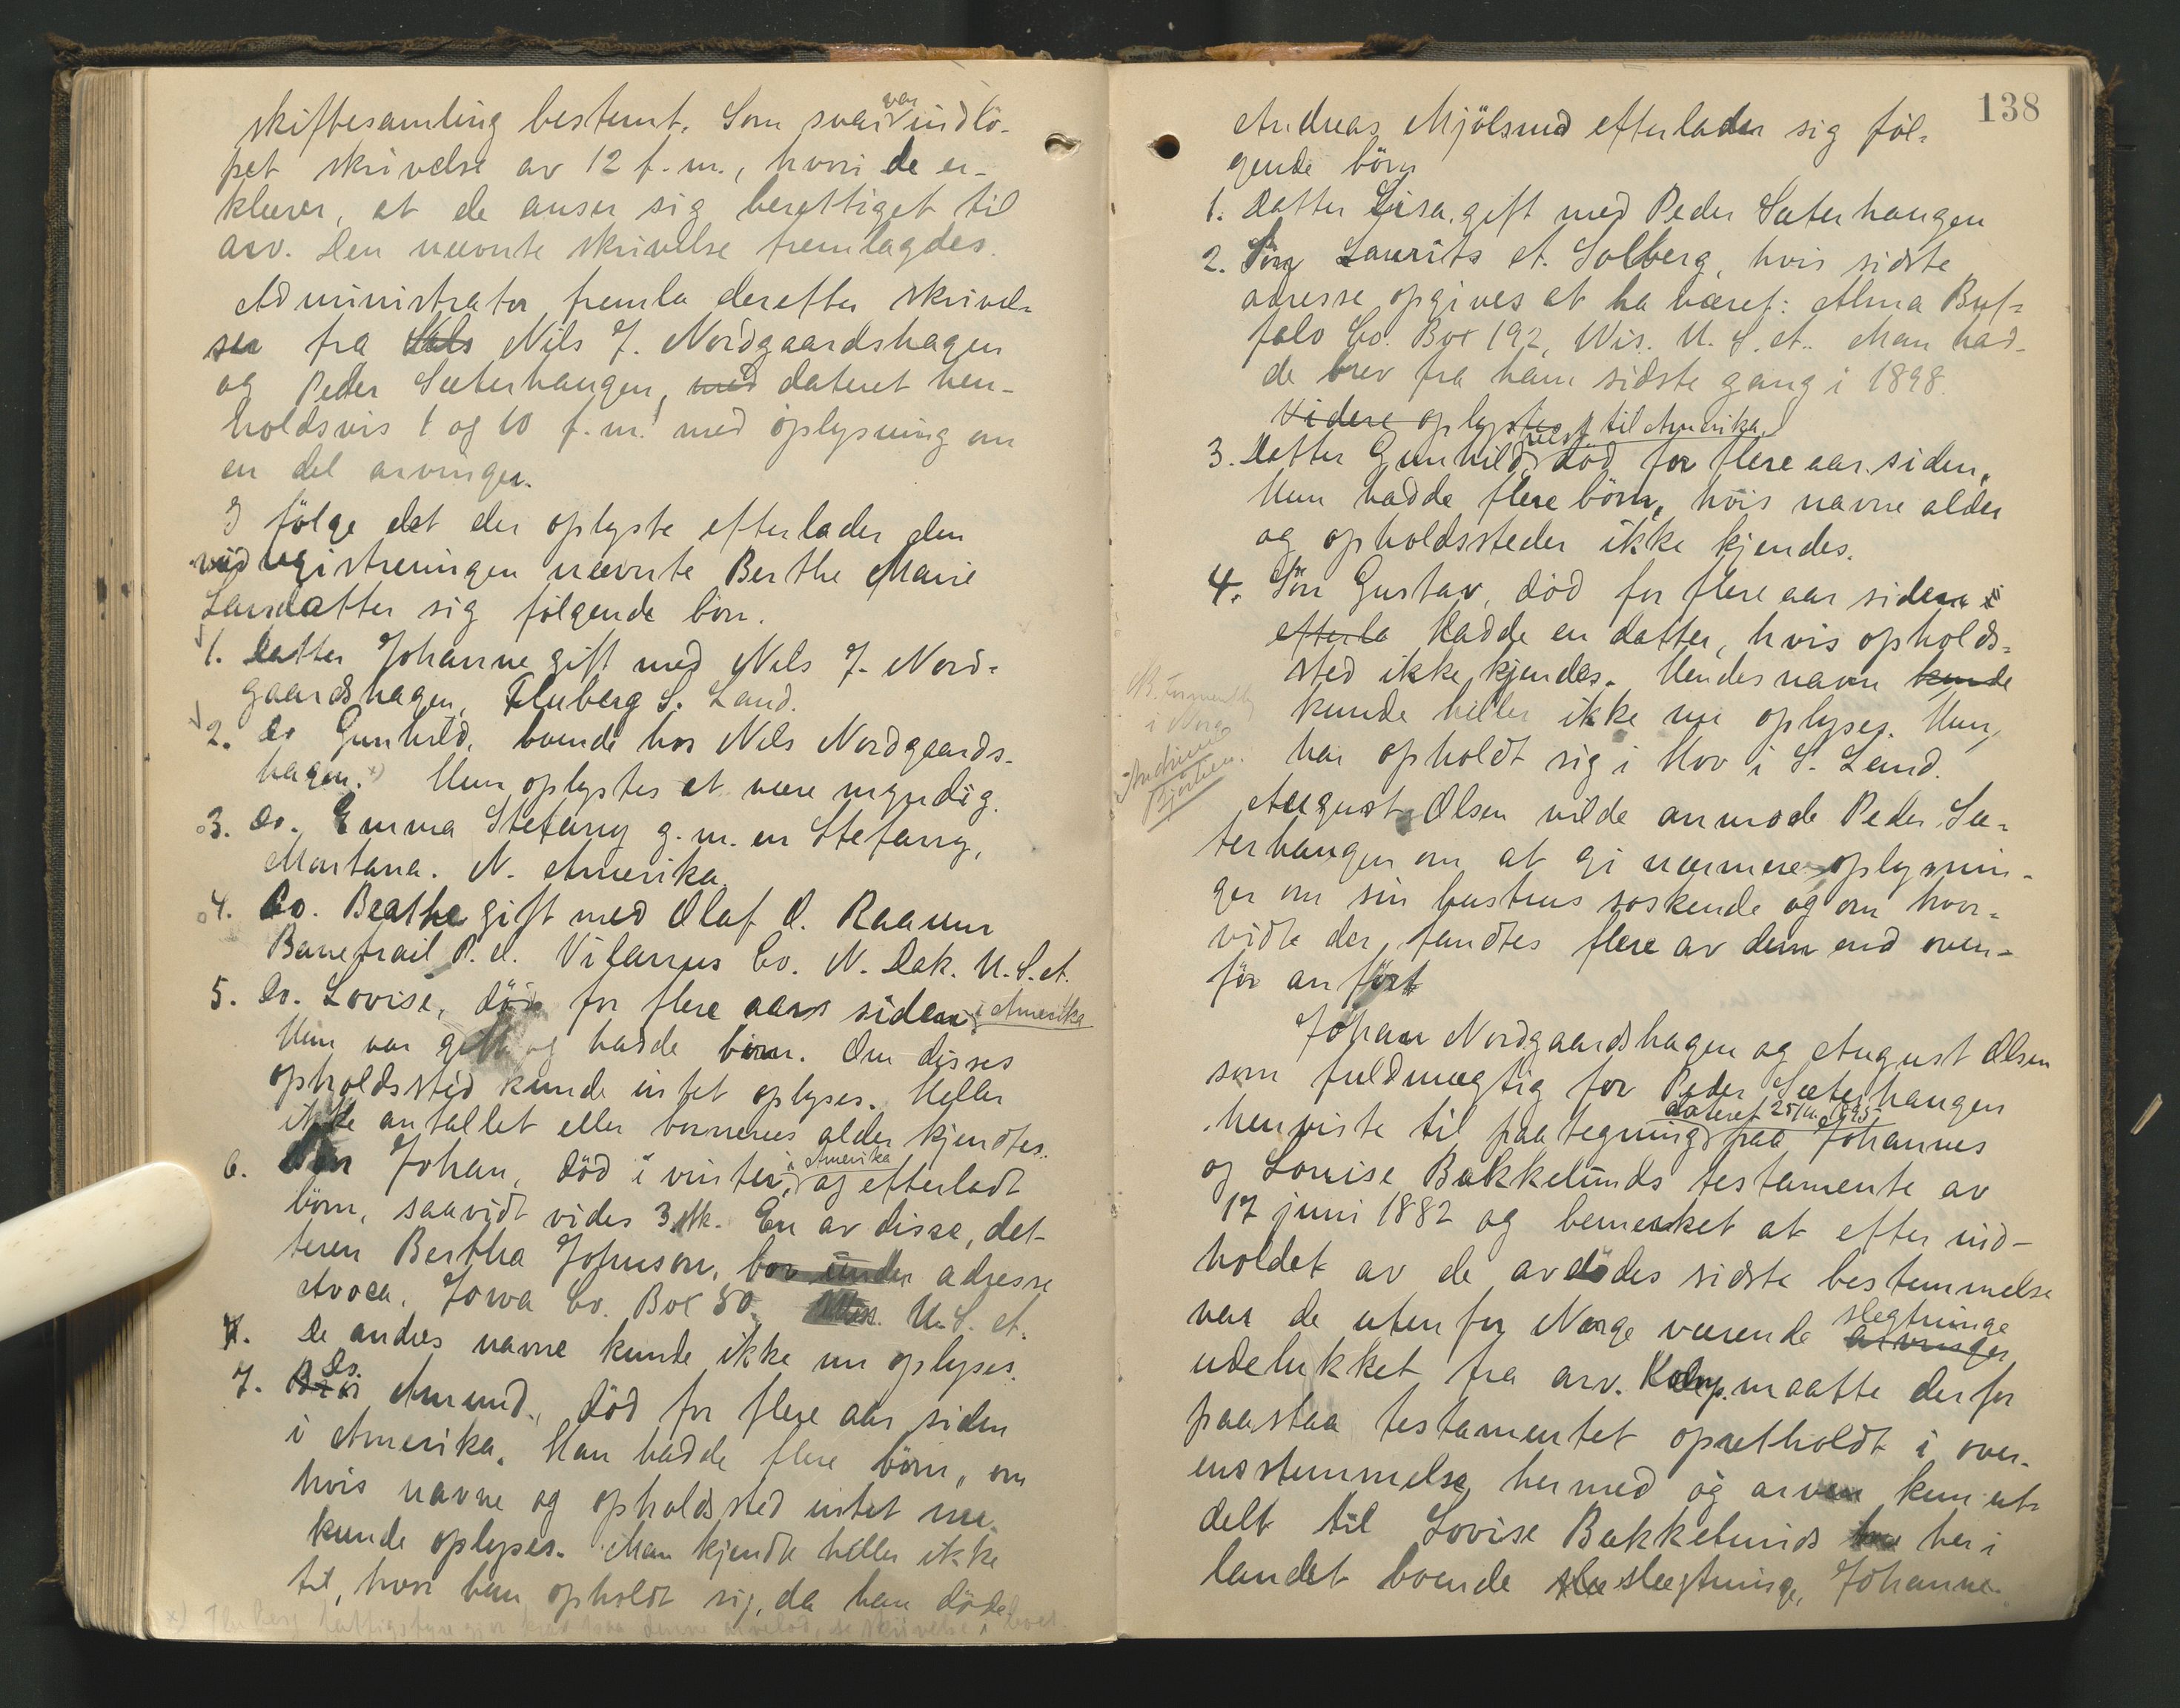 skiftesamling bestemt. Som svar var indlö-
pet skrivelse av 12 f.m., hvori de er-
klærer, at de anser sig berettiget til
arv. Den nævnte skrivelse fremlagdes.
Administrator fremla derefter skrivel-
ser fra Nils J. Nordgaardshagen
og Peder Sæterhaugen, med dateret hen-
holdsvis 1 og 10 f.m. med oplysning om
en del arvinger.
I følge det der oplyste efterlader den
ved registreringen nævnte Berthe Marie
Larsdatter sig følgende børn.
1. Datter Johanne gift med Nils J. Nord-
gaardshagen, Fluberg S. Land.
2. Do Gunhild, boende hos Nils Nordgaards-
hagen. x) Hun oplystes at være myndig.
3. Do. Emma Stefany g.m. en Stefany,
Montana. N. Amerika.
4. Do. Beathe gift med Olaf O. Raaum
Banetrail P.O. Co. N. Dak. U.S.A.
5. Do. Lovise, död for flere aar siden i Amerika
Hun var gift og hadde börn. Om disses
opholdssted kunde intet oplyses. Heller
ikke antallet eller börnenes alder kjendtes.
6. Sön Johan, död i vinter, i Amerika og efterladt
börn, saavidt vides 3 stk. En av disse, dat-
teren Bertha Johnson, bor under adresse
Avoca, Iowa Co. Box 80. U.S.A.
De andres navne kunde ikke nu oplyses.
7. Do. Amund, död for flere aar siden
i Amerika. Han hadde flere börn, om
hvis navne og opholdssted intet nu
kunde oplyses. Man kjendte heller ikke
til, hvor han opholdt sig, da han døde.
138
Andreas Mjölsnud efterlader sig föl-
gende börn
1. Datter Lisa, gift med Peder Sæterhaugen
2. Sön Laurits A. Solberg, hvis sidste
adresse opgives at ha været: Alma Buf-
falo Co. Box 192, Wis. U.S.A. Man had-
de brev fra ham sidste gang i 1898.
Videre oplystes
3. Datter Gunhild, reist til Amerika, död for flere aar siden.
Hun hadde flere börn, hvis navne alder
og opholdssteder ikke kjendes.
4. Sön Gustav, död for flere aar siden
efterla hadde en datter, hvis opholds-
sted ikke kjendes. Hendes navn kunde
kunde heller ikke nu oplyses. Hun
har opholdt sig i Hov i S. Land.
i Norge
August Olsen vilde anmode Peder Sæ-
terhaugen om at gi nærmere oplysnin-
ger om sin hustrus søskende og om hvor-
vidt der fandtes flere av dem end oven-
for anfört
Johan Nordgaardshagen og August Olsen
som fuldmægtig for Peder Sæterhaugen
henviste til paategning dateret 25/11 1895 paa Johannes
og Louise Bakkelunds testamente av
17 juni 1882 og bemerket at efter ind-
holdet av de avdødes sidste bestemmelse
var de utenfor Norge værende arvinger slegtninge
udelukket fra arv. Komp. maatte derfor
paastaa testamentet opretholdt i over-
ensstemmelse hermed og arven kun ut-
delt til Lovise Bakkelunds her i
landet boende slegtninge, Johanne